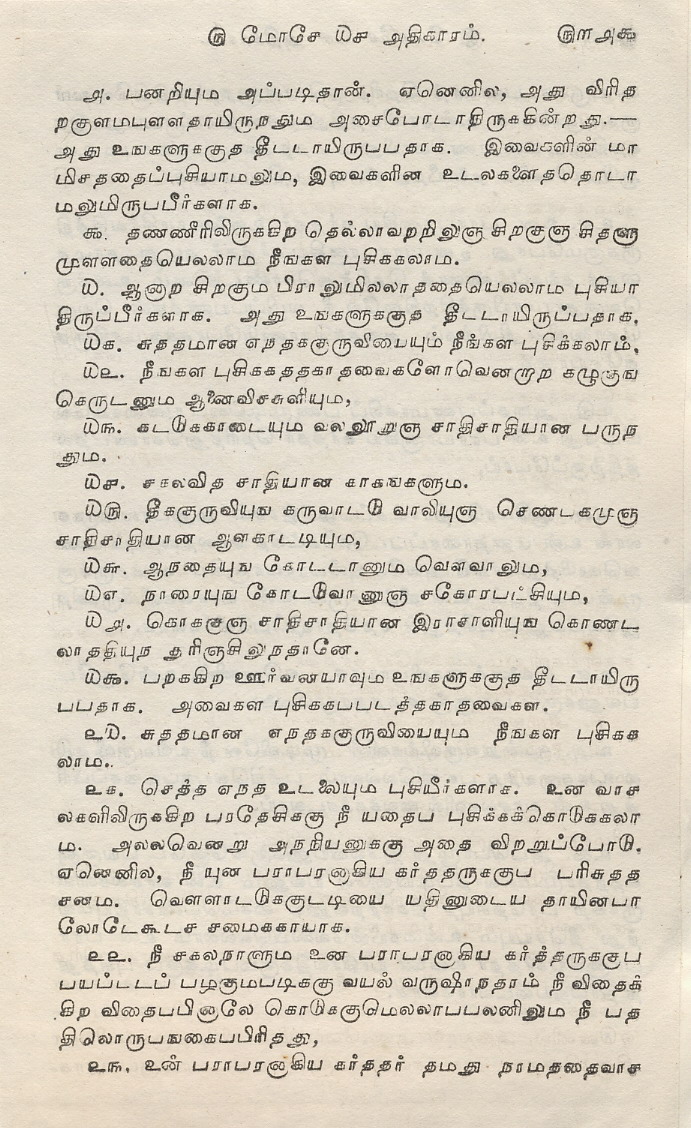 ௫ மோசே ௰௪ அதிகாரம். ௫௱௮௯
௮. பனறியும அப்படிதான். ஏனெனில, அது விரித
றகுளமபுளளதாயிருநதும அசைபோடாதிருககின்றது.—
அது உஙகளுககுத தீடடாயிருபபதாக. இவைகளின் மா
மிசததைப்புசியாமலும, இவைகளின உடலகளைததொடா
மலுமிருபபீர்களாக.
௯. தணணீரிலிருககிற தெல்லாவறறிலுஞ சிறகுஞ சிதளு
முளளதையெலலாம நீஙகள புசிககலாம.
௰. ஆனற சிறகும பிரானுமில்லாததையெல்லாம புசியா
திருப்பீர்களாக. அது உஙகளுககுத தீடடாயிருப்பதாக.
௰௧. சுததமான எநதககுருவியையும் நீஙகள புசிக்கலாம்,
௰௨. நீஙகள புசிககததகாதவைகளோவெனமுற கழுகுங
கெருடனும ஆணைவிசசுளியும,
௰௩. கடடுககாடையும வலலூறுஞ சாதிசாதியான பருந
தும.
௰௪. சகலவித சாதியான காகஙகளும.
௰௫. தீககுருவியுங கருவாடடு வாலியுஞ செணடகமுஞ
சாதிசாதியான ஆளகாடடியும,
௰௬. ஆநதையுங கோடடானும வெளவாலும,
௰௭. நாரையுங கோடவோனுஞ சகோரபட்சியும,
௰௮. கொககுஞ சாதிசாதியான இராசாளியுங கொணட
லாததியுந தூரிஞசிலுநதானே.
௰௯. பறககிற ஊர்வனயாவும உஙகளுககுத தீடடாயிரு
பபதாக. அவைகள புசிககபபடத்தகாதவைகள.
௨௰. சுததமான எநதககுருவியையும நீஙகள புசிகக
லாம..
௨௧. செத்த எநத உடலையும புசியீர்களாக. உன வாச
லகளிலிருககிற பரதேசிககு நீ யதைப புசிக்கக்கொடுககலா
ம. அலலவெனறு அநநியனுககு அதை விறறுப்போடு.
ஏனெனில, நீ யுன பராபரனாகிய கர்த்தருககுப பரிசுதத
சனம. வெளளாடடுககுடடியை யதினுடைய தாயினபா
லோடேகூடச சமைககாயாக.
௨௨. நீ சகலநாளும உன பராபரனாகிய கர்த்தருககுப
பயப்படப் பழகுமபடிககு வயல் வருஷாநதரம் நீ விதைக்
கிற விதைபபினாலே கொடுககுமெல்லாபபலனிலும நீ பத
திலொருபஙகைபபிரிதது,
௨௩. உன் பராபரனாகிய கர்ததர் தமது நாமததைவாச